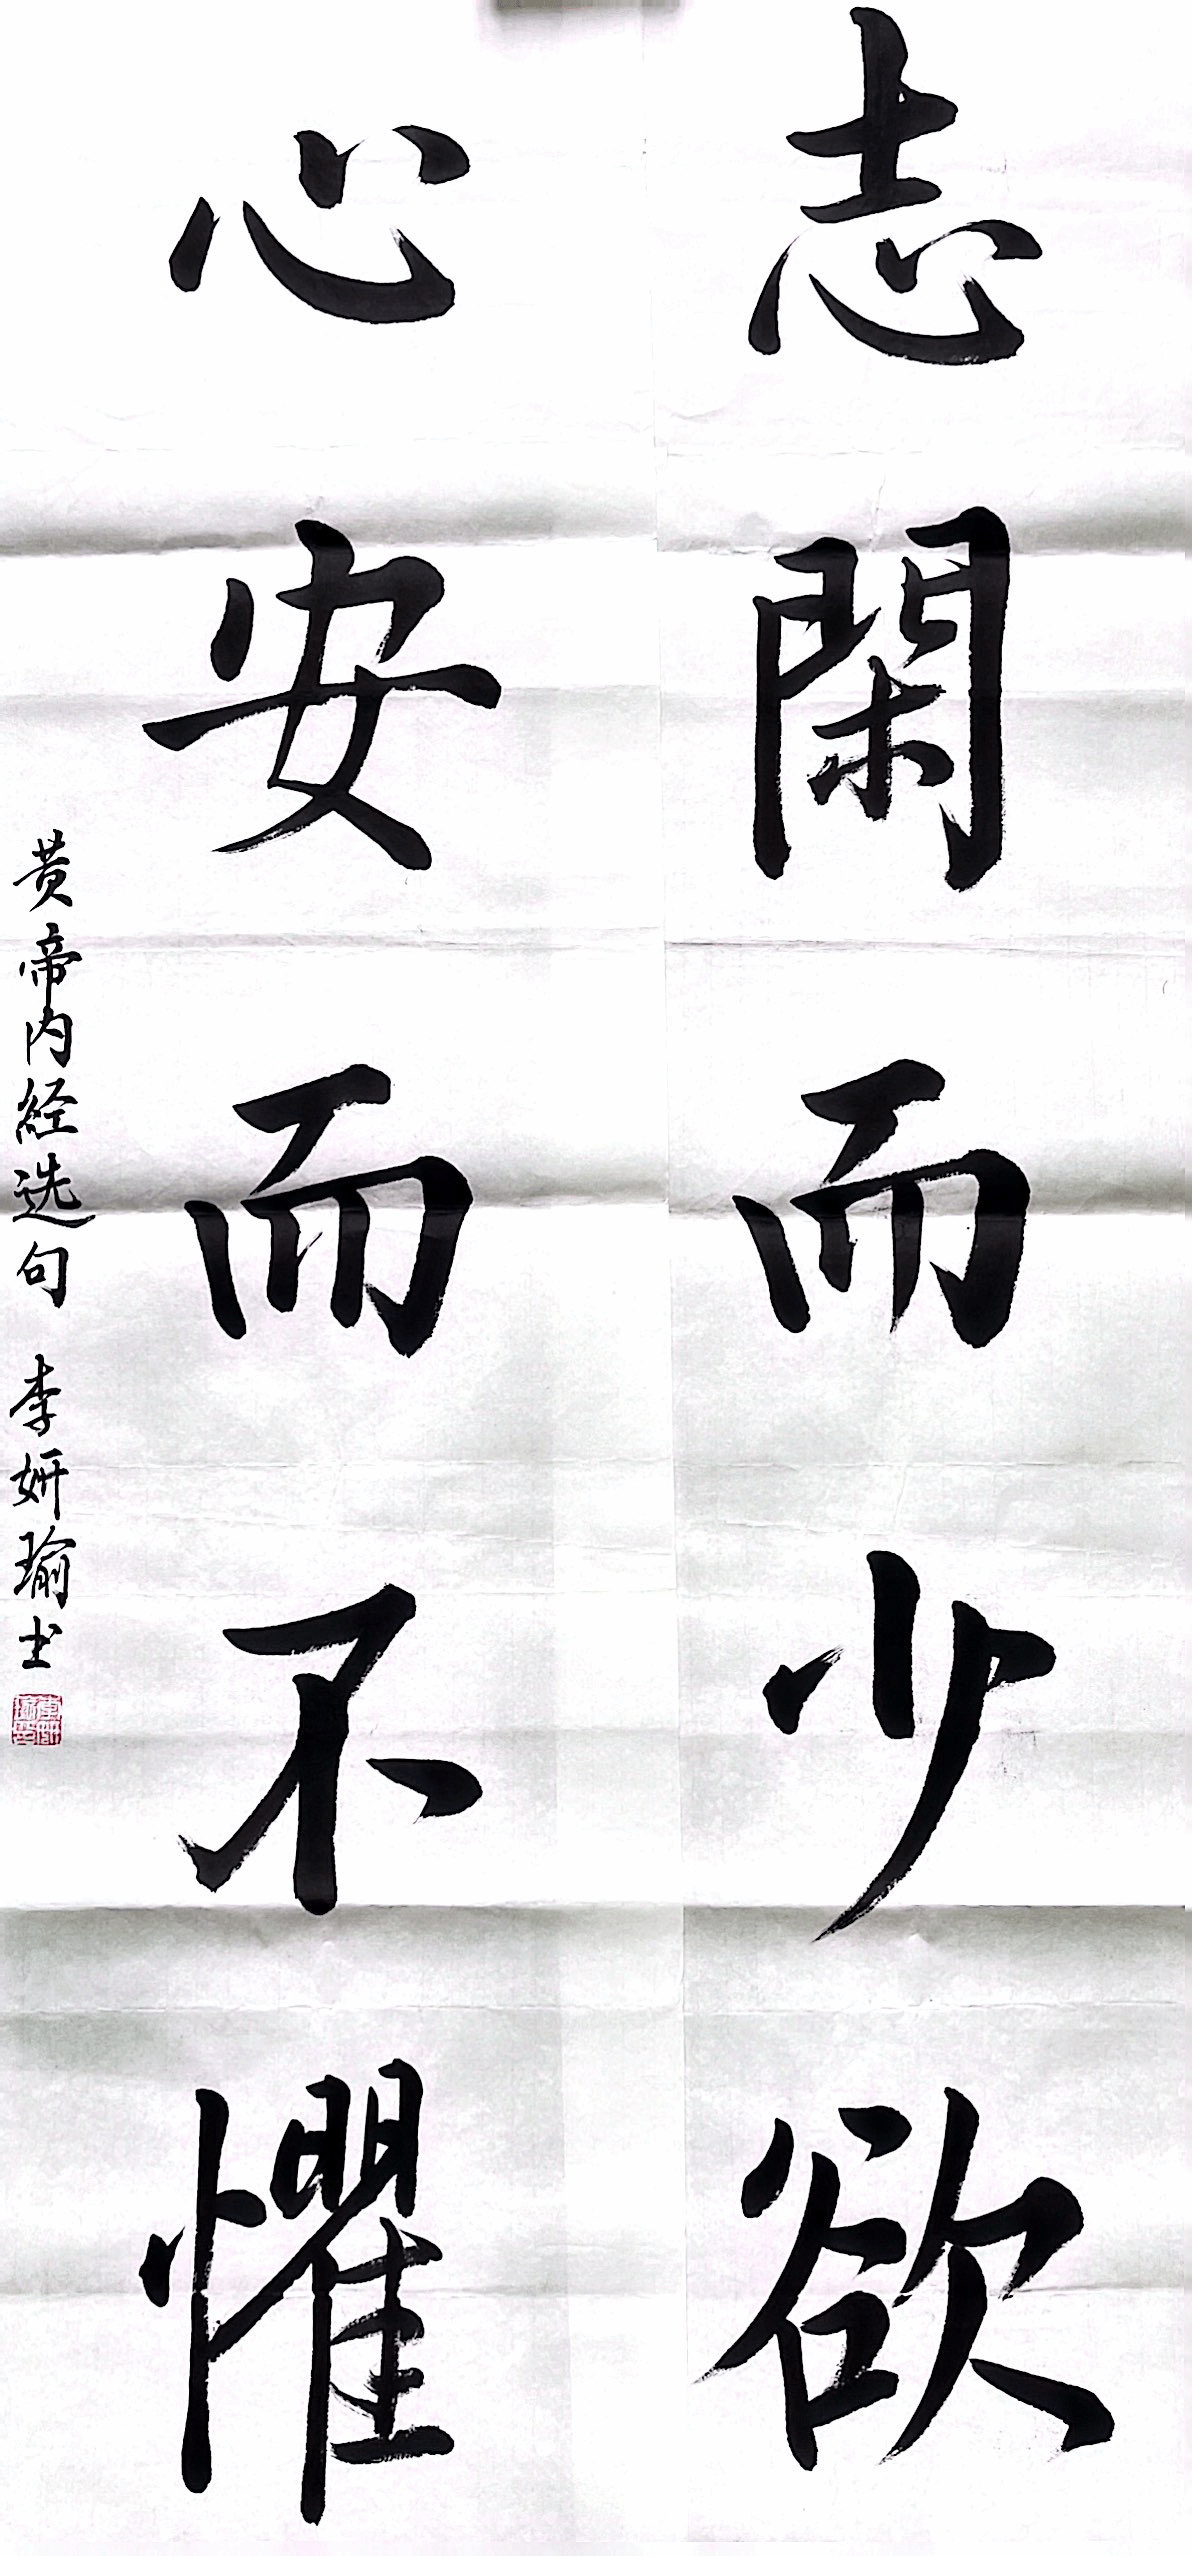 志閑而少欲
心安而不懼
黄帝内経选句 李妍瑜书